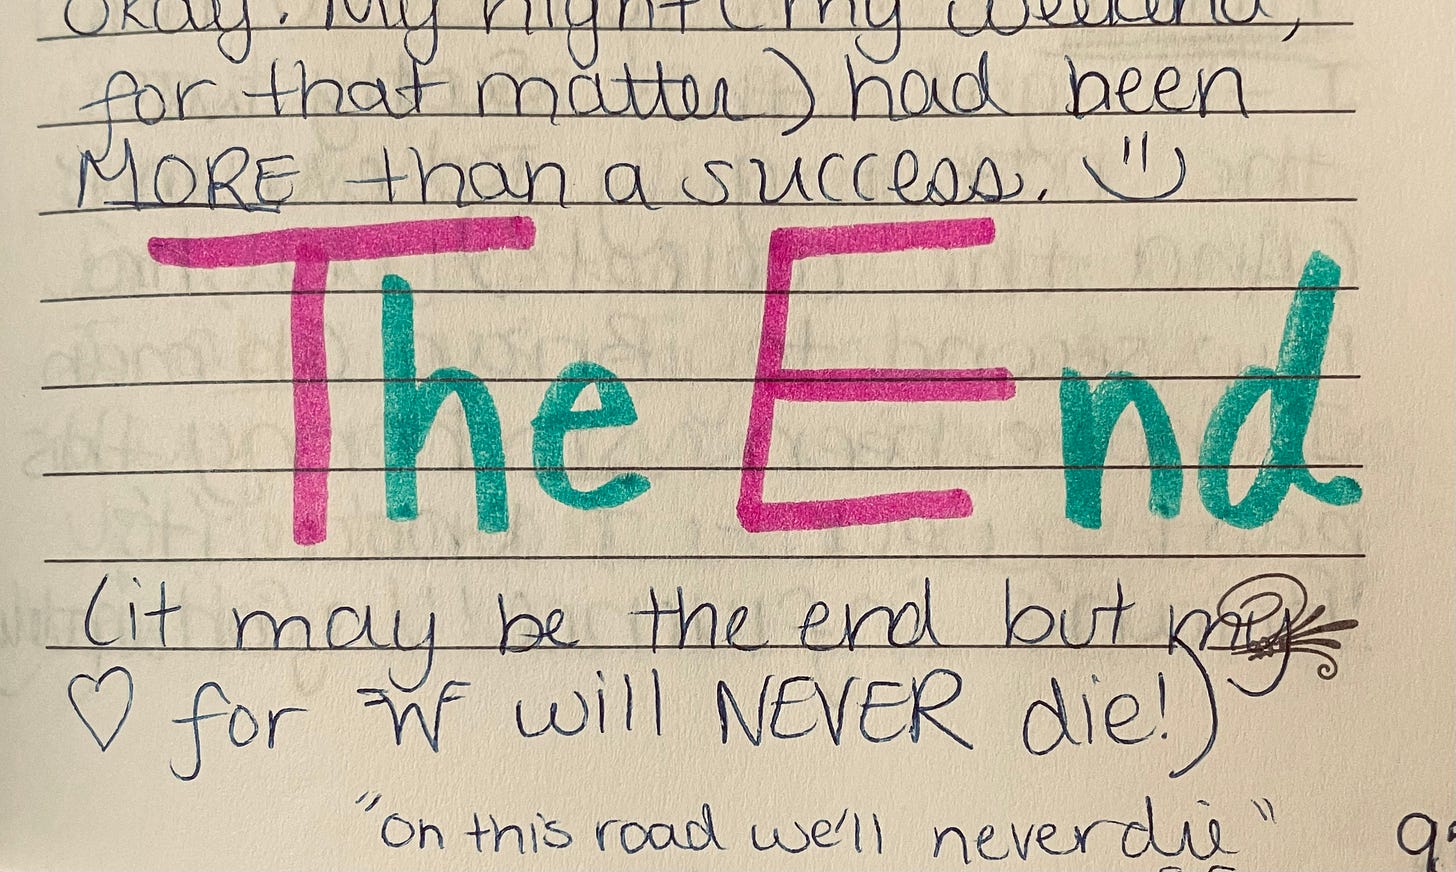 okay. My night (my weekend,
for that matter) had been
MORE than a success.
The End
(it may be the end but my
♡ for W will NEVER die!)
"on this road we'll never die"